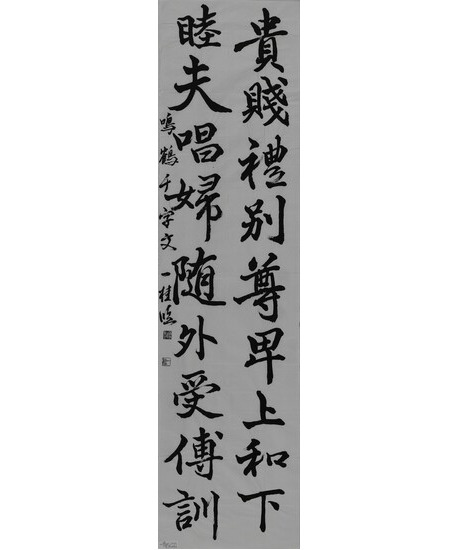 貴賤禮別尊卑上和下
睦夫唱婦随外受傅訓
鳴鶴千字文 一桂臨